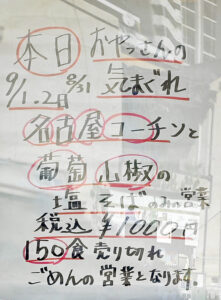 本日 おやっさんの
9/1.2日 8/31 気まぐれ
名古屋コーチンと
葡萄山椒の
塩そばのみの営業
税込¥1000円
150食売り切れ
ごめんの営業となります。